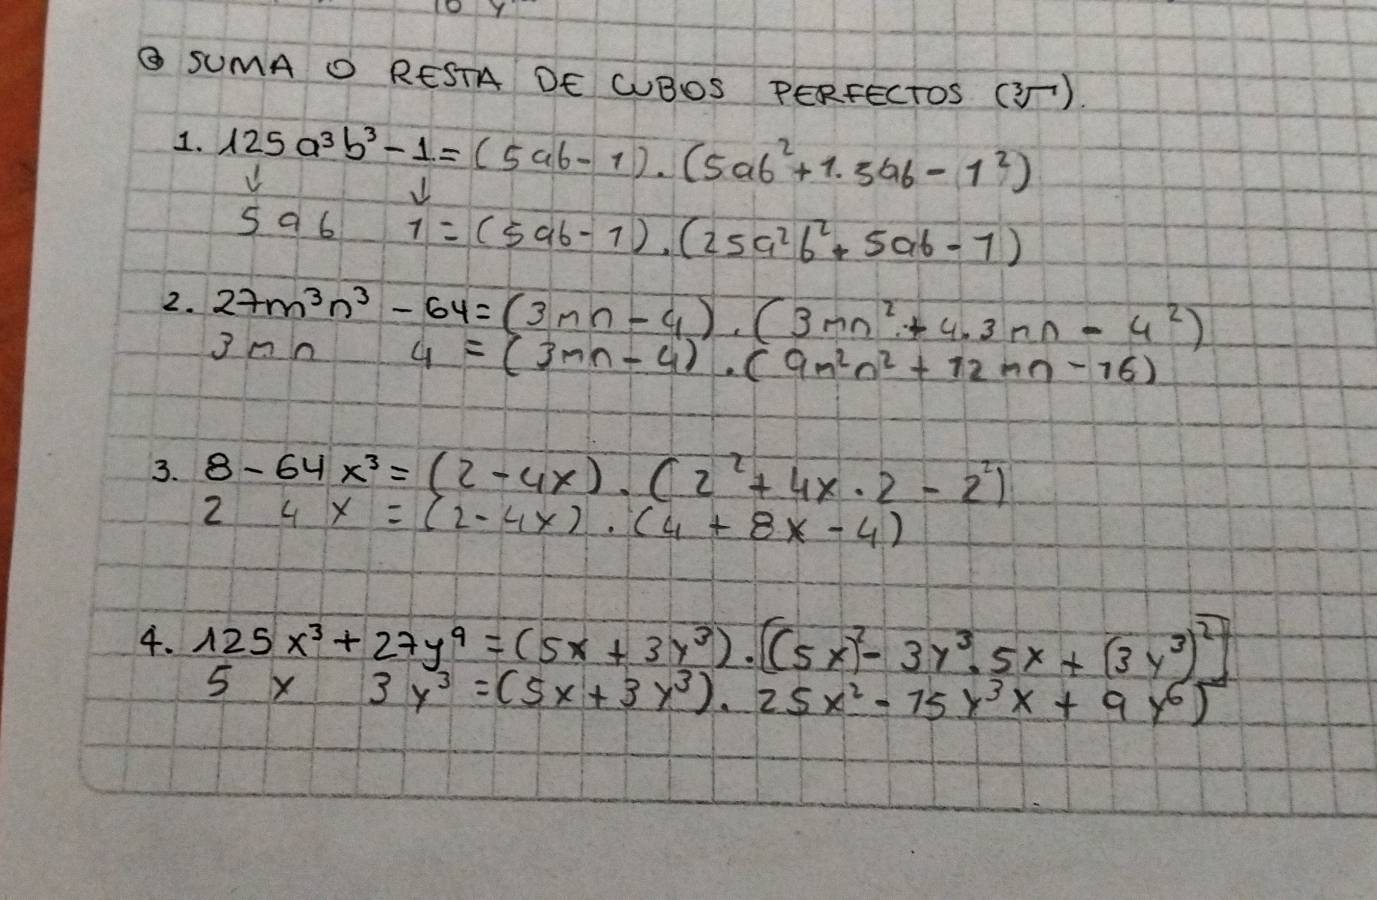 ③ SUMA O RESTA DE CUBOS PERFECTOS (∛‾).
1. 125a³b³ - 1 = (5ab - 1).(5ab² + 1.5ab - 1²)
↓ ↓
5ab 1 = (5ab - 1).(25a²b² + 5ab - 1)
2. 27m³n³ - 64 = (3mn - 4).(3mn² + 4.3mn - 4²)
3mn 4 = (3mn - 4).(9m²n² + 12mn - 16)
3. 8 - 64x³ = (2 - 4x).(2² + 4x.2 - 2²)
2 4x = (2 - 4x).(4 + 8x - 4)
4. 125x³ + 27y⁹ = (5x + 3y³).[(5x)² - 3y³.5x + (3y³)²]
5x 3y³ = (5x + 3y³). 25x² - 15y³x + 9y⁶)